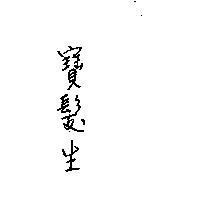 寶髮生